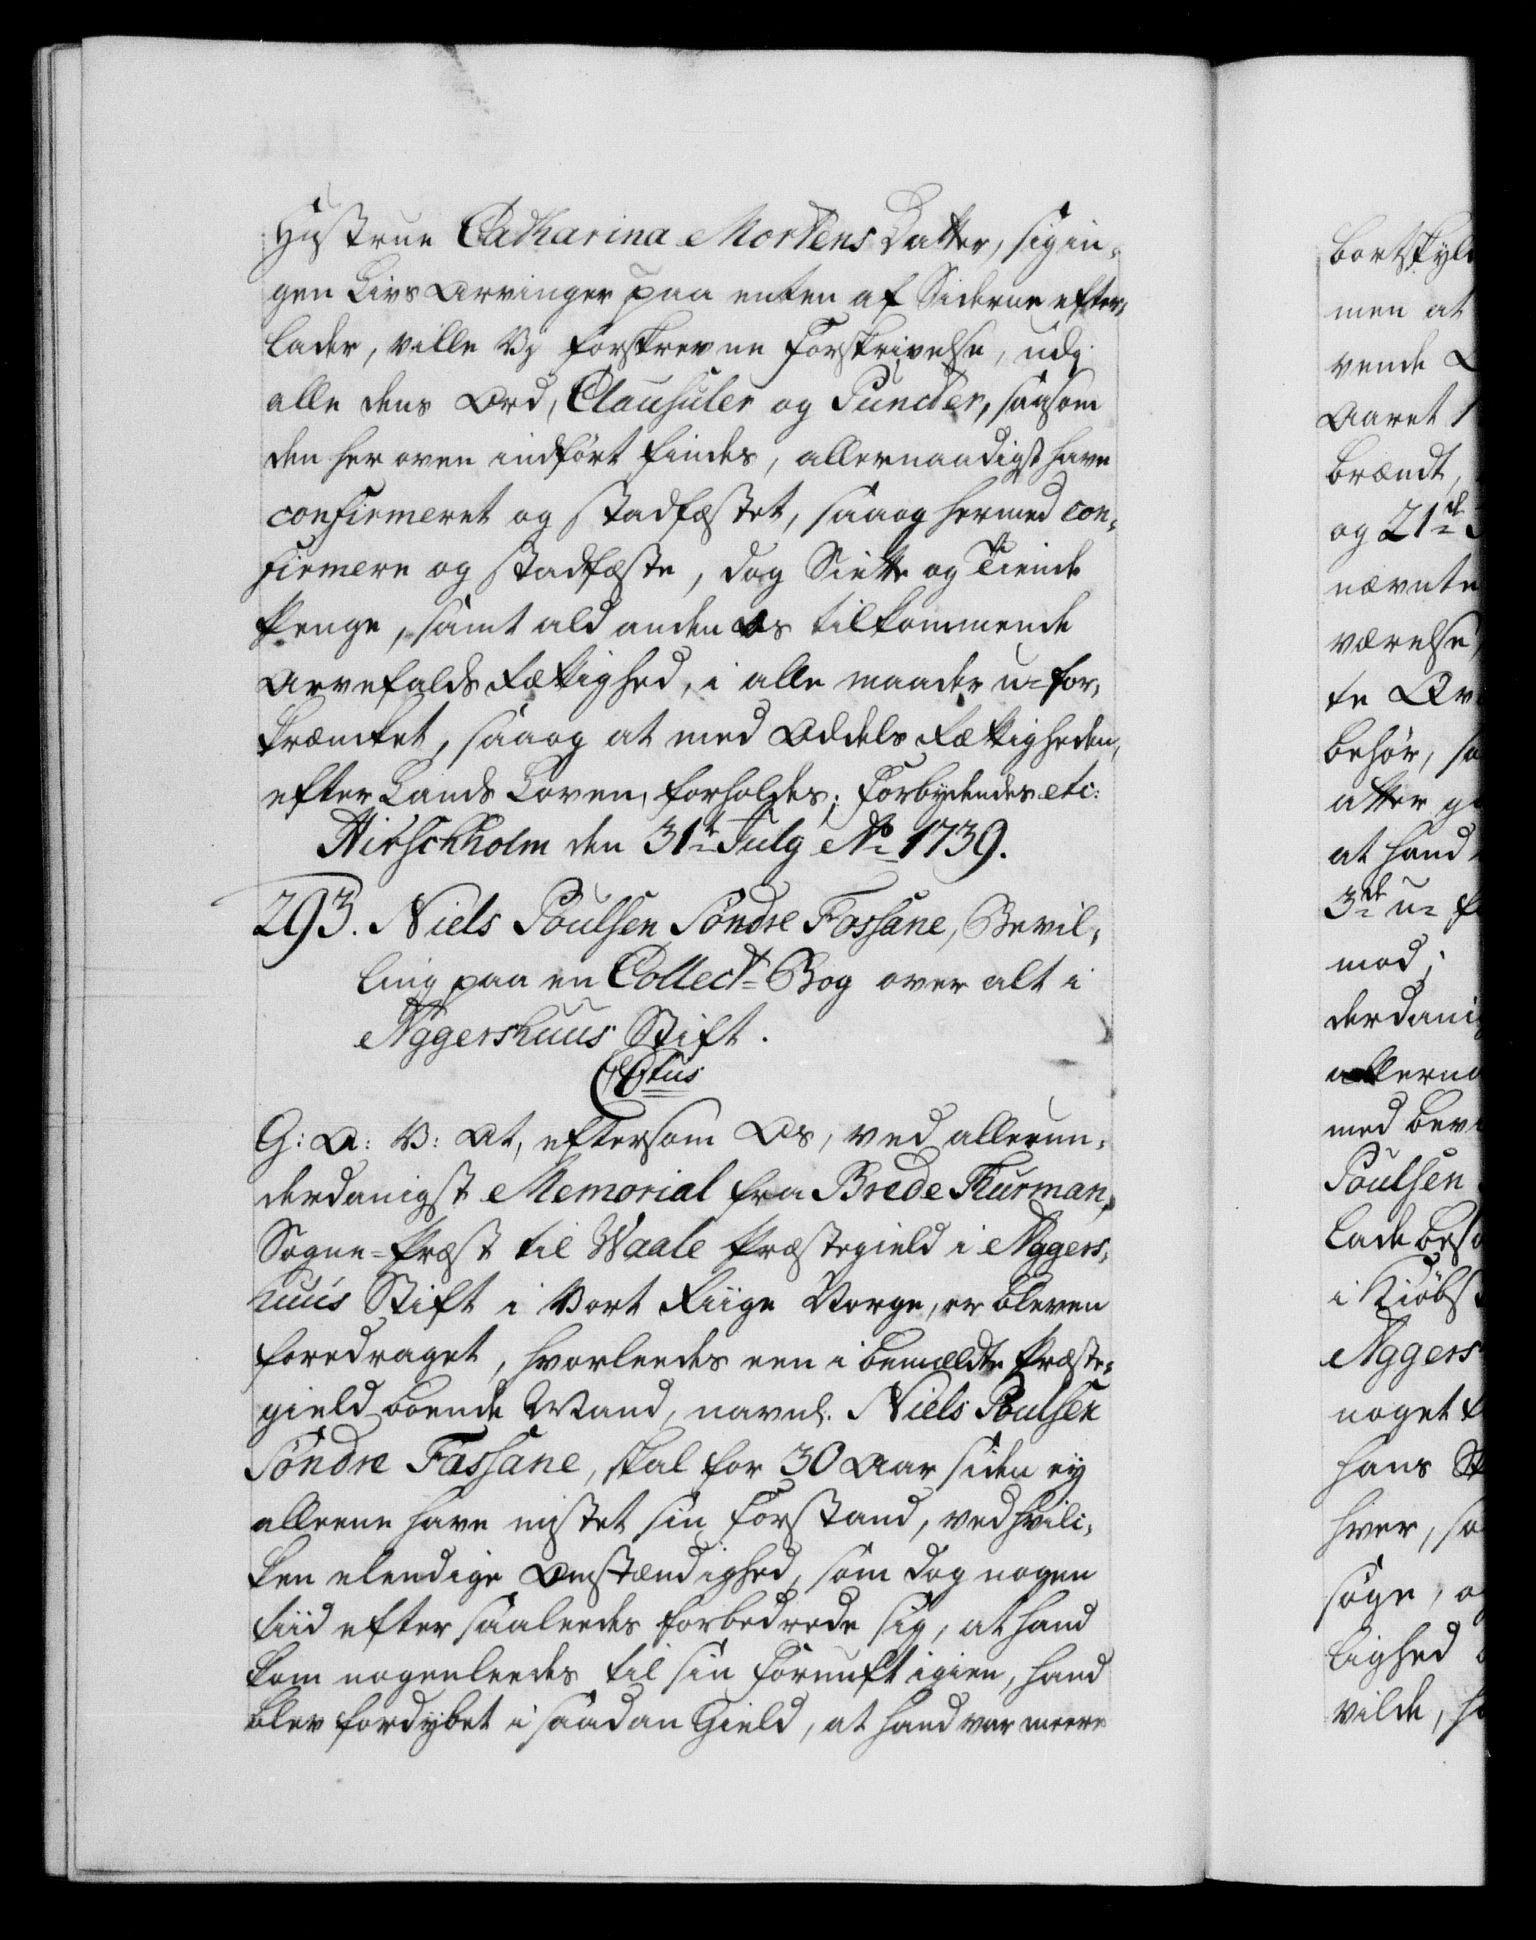 Hustrue Catharina Mortens Datter, sig in-
gen Livs Arvinger paa enten af Siderne efter-
lader, ville Vj forskrevne Forskrivelse, udj
alle dens Ord, Clausuler og Puncter, saasom
den her oven indført findes, allernaadigst have
confirmeret og stadfæstet, saa og hermed con-
firmere og stadfæste, dog Siette og Tiende
Penge, samt ald anden Os tilkommende
Arvefalds Rættighed, i alle maader u-for-
krænket, saa og at med Oddels Rættigheden,
efter Lands Loven, forholdes; Forbydendes etc:
Hirschholm den 31te July Ao 1739.
293. Niels Poulsen Söndre Fossane, Bevil-
ling paa en Collect-Bog over alt i
Aggershuus Stift.
C 6tus
G: A: V: At, eftersom Os, ved allerun-
derdanigst Memorial fra Brede Thurman,
Sogne-Præst til Waale Præstegield i Aggers-
huus Stift i Vort Riige Norge, er bleven
foredraget, hvorleedes een i bemældte Præste-
gield boende Mand, navnl. Niels Poulsen
Söndre Fassane, skal for 30 Aar siden ey
alleene have mistet sin Forstand, ved hvil-
ken elendige Omstændighed, som dog nogen
tiid efter saaleedes forbedrede sig, at hand
kom nogenleedes til sin Fornuft igien, hand
blev fordybet i saadan Gield, at hand var meere
bortskyl
men at
vende
Aaret 1
brændt,
og 21de
nævnte
værelse,
te
behør, so
atter
at hand
3de u-
mod;
derdanig
allerna
med bev
Poulsen
lade
i Kiöbs
Aggers
noget
hans
hver, so
søge, o
lighed
vilde, h